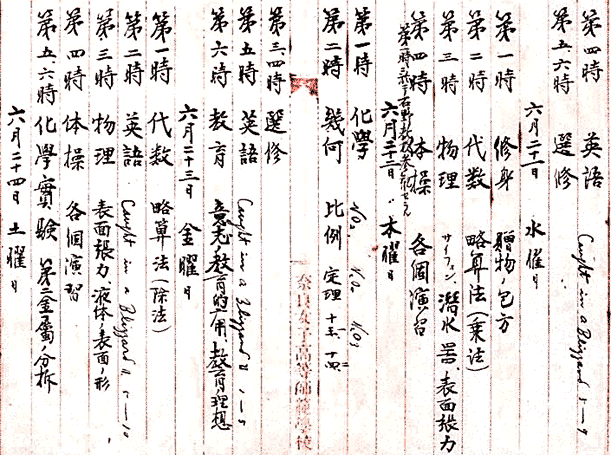 第四時 英語 Caught in a Blizzard 5-9
第五、六時 選修
六月二十一日 水曜日
第一時 修身 贈物ノ包方
第二時 代数 略算法(乗法)
第三時 物理 サイフォン、潜水器、表面張力
第四時 体操 各個演習
六月二十二日 木曜日
第一時 化學 NO₂ N₂O₃
第二時 幾何 比例 定理 十三、十四
奈良女子高等師範學校
第三、四時 選修
第五時 英語 Caught in a Blizzard II 1-5
第六時 教育 意志ノ教育的方面、教育ノ理想
六月二十三日 金曜日
第一時 代数 略算法(除法)
第二時 英語 Caught in a Blizzard II 5-10
第三時 物理 表面張力 液体ノ表面ノ形
第四時 体操 各個演習
第五、六時 化學実験 第二金屬ノ分析
六月二十四日 土曜日